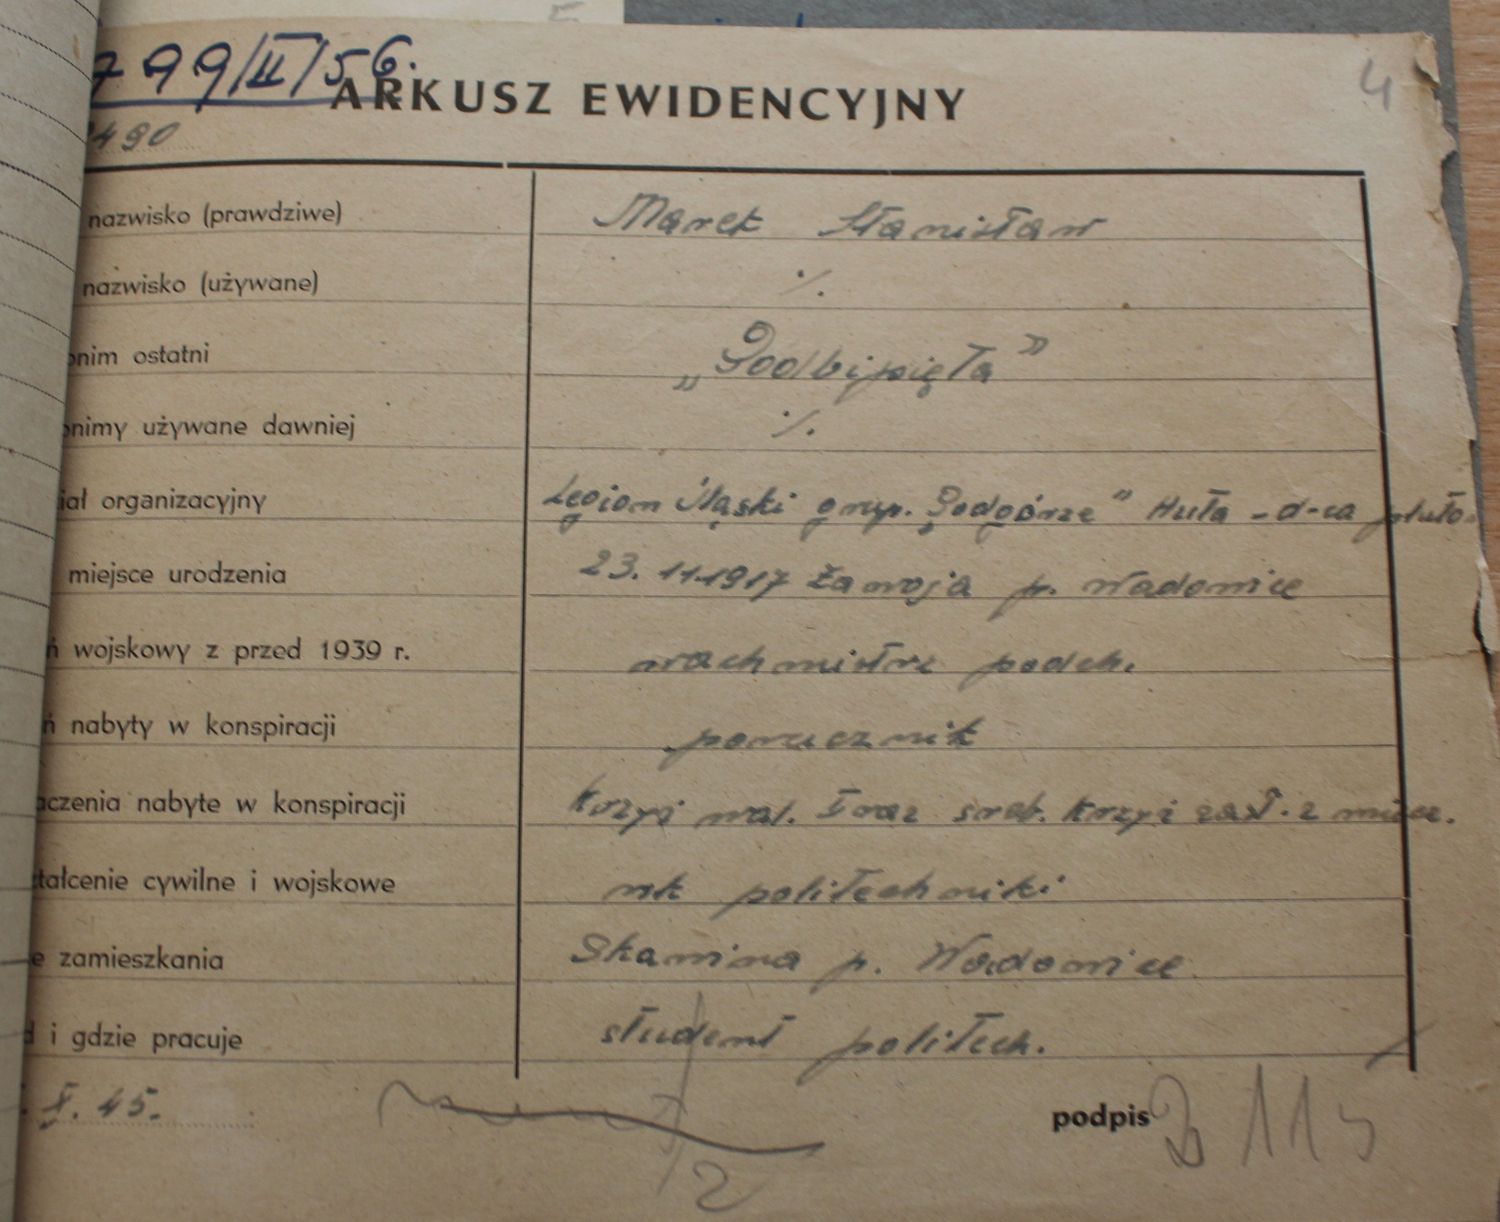 799/II/56.
ARKUSZ EWIDENCYJNY
4
490
nazwisko (prawdziwe) Marek Stanisław
nazwisko (używane) ·/.
onim ostatni „Podbipięta”
onimy używane dawniej ·/.
iał organizacyjny Legion Śląski grup. Podgórze” Huta - d-ca pluto
miejsce urodzenia 23.11.1917 Zawoja p. Wadowice
ń wojskowy z przed 1939 r. wachmistrz podch.
ń nabyty w konspiracji porucznik
aczenia nabyte w konspiracji Krzyż wal. I raz sreb. Krzyż zasł. z miecz.
tałcenie cywilne i wojskowe rk politechniki
e zamieszkania Skawina p. Wadowice
d i gdzie pracuje student politech.
X. 45.
podpis
2